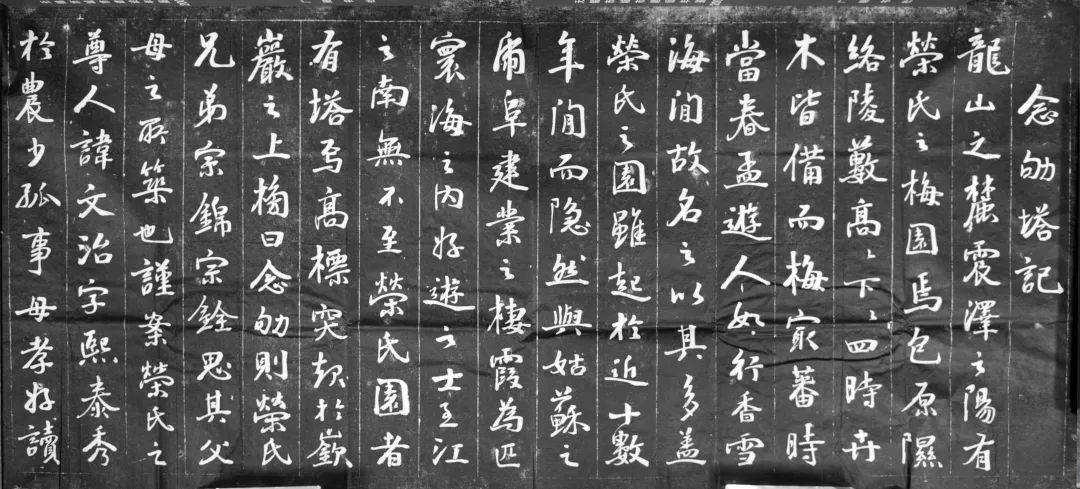 念劬塔記
龍山之麓震澤之陽有
榮氏之梅園焉包原隰
絡陵藪高〻下〻四時卉
木皆備而梅冣蕃時
當春孟遊人如行香雪
海間故名之以其多盖
榮氏之園雖起於近十數
年間而隐然與姑蘇之
虎阜建業之棲霞為匹
寰海之内好遊之士至江
之南無不至榮氏園者
有塔焉高標突起於嶔
巖之上牓曰念劬則榮氏
兄弟宗錦宗銓思其父
母之所築也謹案榮氏之
尊人諱文治字熙泰秀
於農少孤事母孝好讀